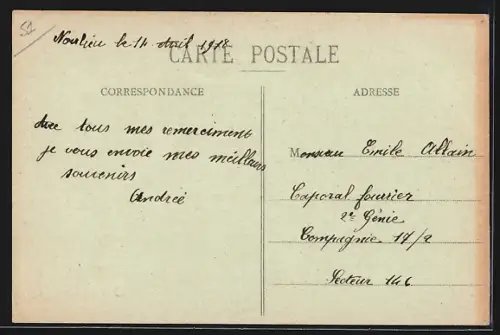 le 14 Avril 1918
CARTE POSTALE
CORRESPONDANCE
ADRESSE
Avec tous mes remerciments
je vous envoie mes meilleurs
souvenirs
Andrée
Monsieur Emile Allain
Caporal fourrier
2e Génie
Compagnie 17/2
Secteur 146